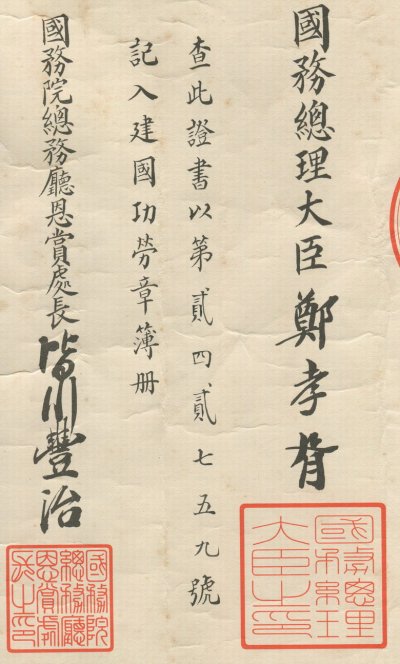 國務總理大臣鄭孝胥
查此證書以第貳四貳七五九號
記入建國功勞章簿册
國務院總務廳恩賞處長皆川豐治
國務總理
大臣之印
國務院
總務廳
恩賞處
長之印